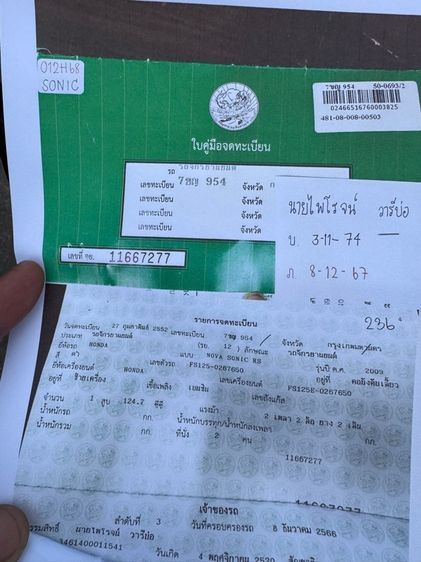 012H68
SONIC
7ขญ 954 50-0693/2
02466516760003825
481-08-008-00503
ใบคู่มือจดทะเบียน
รถ รถจักรยานยนต์
เลขทะเบียน 7ขญ 954 จังหวัด ก
เลขทะเบียน จังหวัด
เลขทะเบียน จังหวัด
เลขทะเบียน จังหวัด
เลขที่ จย. 11667277
นายไพโรจน์ วารีย่อ
บ. 3-11-74
ภ. 8-12-67
236
รายการจดทะเบียน
วันจดทะเบียน 27 กุมภาพันธ์ 2552 เลขทะเบียน 7ขญ 954 จังหวัด กรุงเทพมหานคร
ประเภท รถจักรยานยนต์ (รย. 12) ลักษณะ รถจักรยานยนต์
ยี่ห้อรถ HONDA แบบ NOVA SONIC RS รุ่นปี ค.ศ. 2009
สี ดำ เลขตัวรถ FS125-0267650 อยู่ที่ คอยึดคันเลี้ยว
ยี่ห้อเครื่องยนต์ HONDA เลขเครื่องยนต์ FS125E-0267650
อยู่ที่ ซ้ายเครื่อง เชื้อเพลิง เบนซิน เลขถังแก๊ส
จำนวน 1 สูบ 124.7 ซีซี แรงม้า 2 เพลา 2 ล้อ ยาง 2 เส้น
น้ำหนักรถ กก. น้ำหนักบรรทุก/น้ำหนักลงเพลา กก.
น้ำหนักรวม กก. ที่นั่ง 2 คน
11667277
11667277
เจ้าของรถ
ลำดับที่ 3 วันที่ครอบครองรถ 8 ธันวาคม 2566
นายไพโรจน์ วารีย่อ
3461400011541 วันเกิด 4 พฤศจิกายน 2520